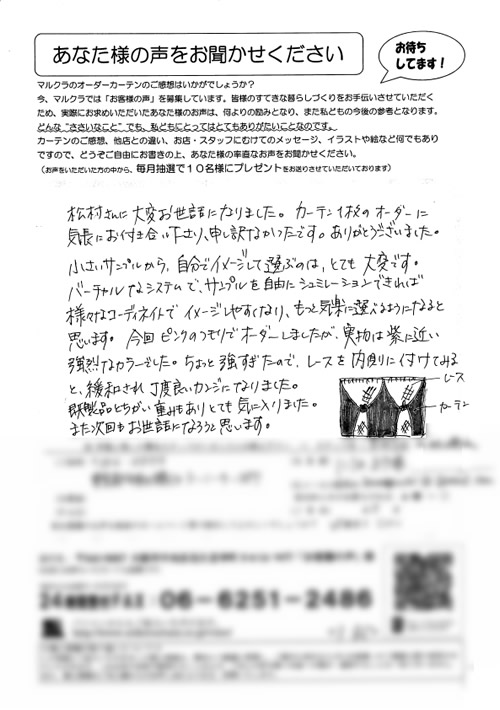 あなた様の声をお聞かせください
お待ち
してます!
マルクラのオーダーカーテンのご感想はいかがでしょうか?
今、マルクラでは「お客様の声」を募集しています。皆様のすてきな暮らしづくりをお手伝いさせていただく
ため、実際にお求めいただいたあなた様のお声は、何よりの励みとなり、また私どもの今後の参考となります。
どんな"ささいなこと"でも、私どもにとってはとてもありがたいことなのです。
カーテンのご感想、他店との違い、お店・スタッフにむけてのメッセージ、イラストや絵など何でもあり
ですので、どうぞご自由にお書きの上、あなた様の率直なお声をお聞かせください。
(お声をいただいた方の中から、毎月抽選で10名様にプレゼントをお送りさせていただいております)
松村さんに大変お世話になりました。カーテン1枚のオーダーに
気長にお付き合い下さり、申し訳なかったです。ありがとうございました。
小さいサンプルから、自分でイメージして選ぶのは、とても大変です。
バーチャルなシステムで、サンプルを自由にシュミレーションできれば
様々なコーディネイトでイメージしやすくなり、もっと気楽に選べるようになると
思います。今回ピンクのつもりでオーダーしましたが、実物は紫に近い
強烈なカラーでした。ちょっと強すぎたので、レースを内側に付けてみる
と、緩和され丁度良いカンジになりました。
既製品とちがい、重みもありとても気に入りました。
また次回もお世話になろうと思います。
レース
カーテン
06-6251-2486